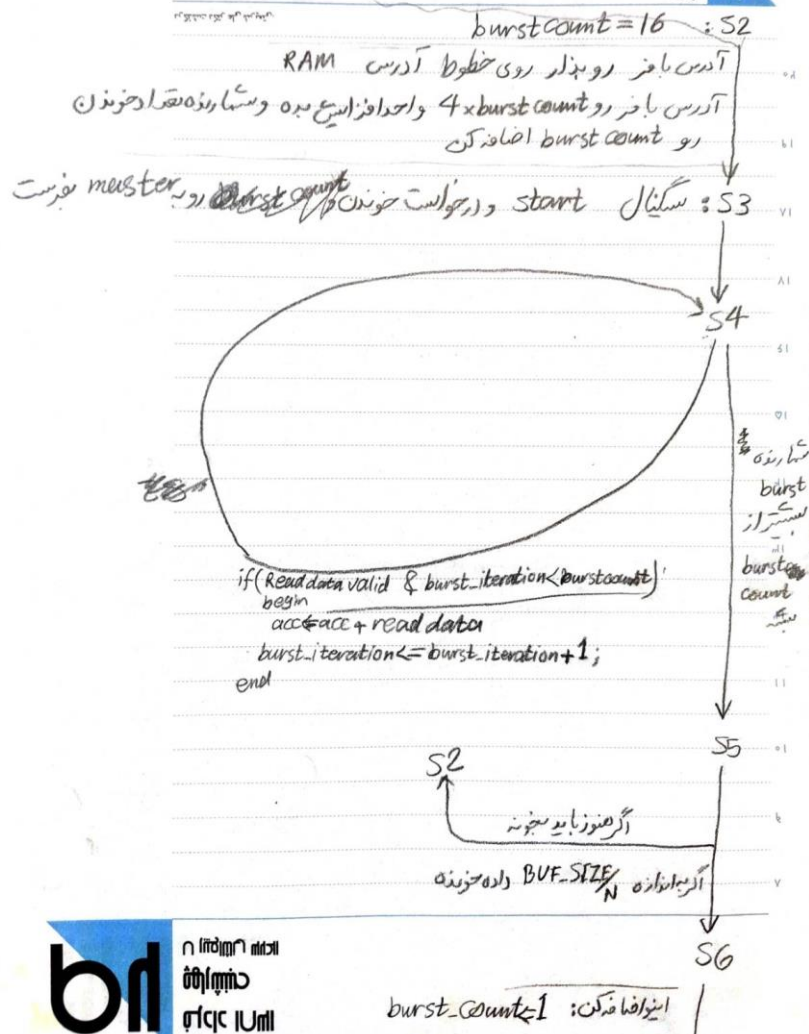 S2 : burstcount = 16
آدرس بافر رو بذار روی خطوط آدرس RAM
آدرس بافر رو 4×burst count واحد افزایش بده و شمارنده تعداد خوندن
رو burst count اضافه کن
S3 : سیگنال start و درخواست خوندن رو به master بفرست
S4
شمارنده
burst
بیشتر از
burst
count
بشه
if(Readdatavalid & burst_iteration<burstcount)
begin
acc<=acc+readdata
burst_iteration<=burst_iteration+1;
end
S5
S2
اگر هنوز باید بخونه
اگر به اندازه BUF_SIZE/N داده خونده
S6
اینو اضافه کن: burst_count<=1